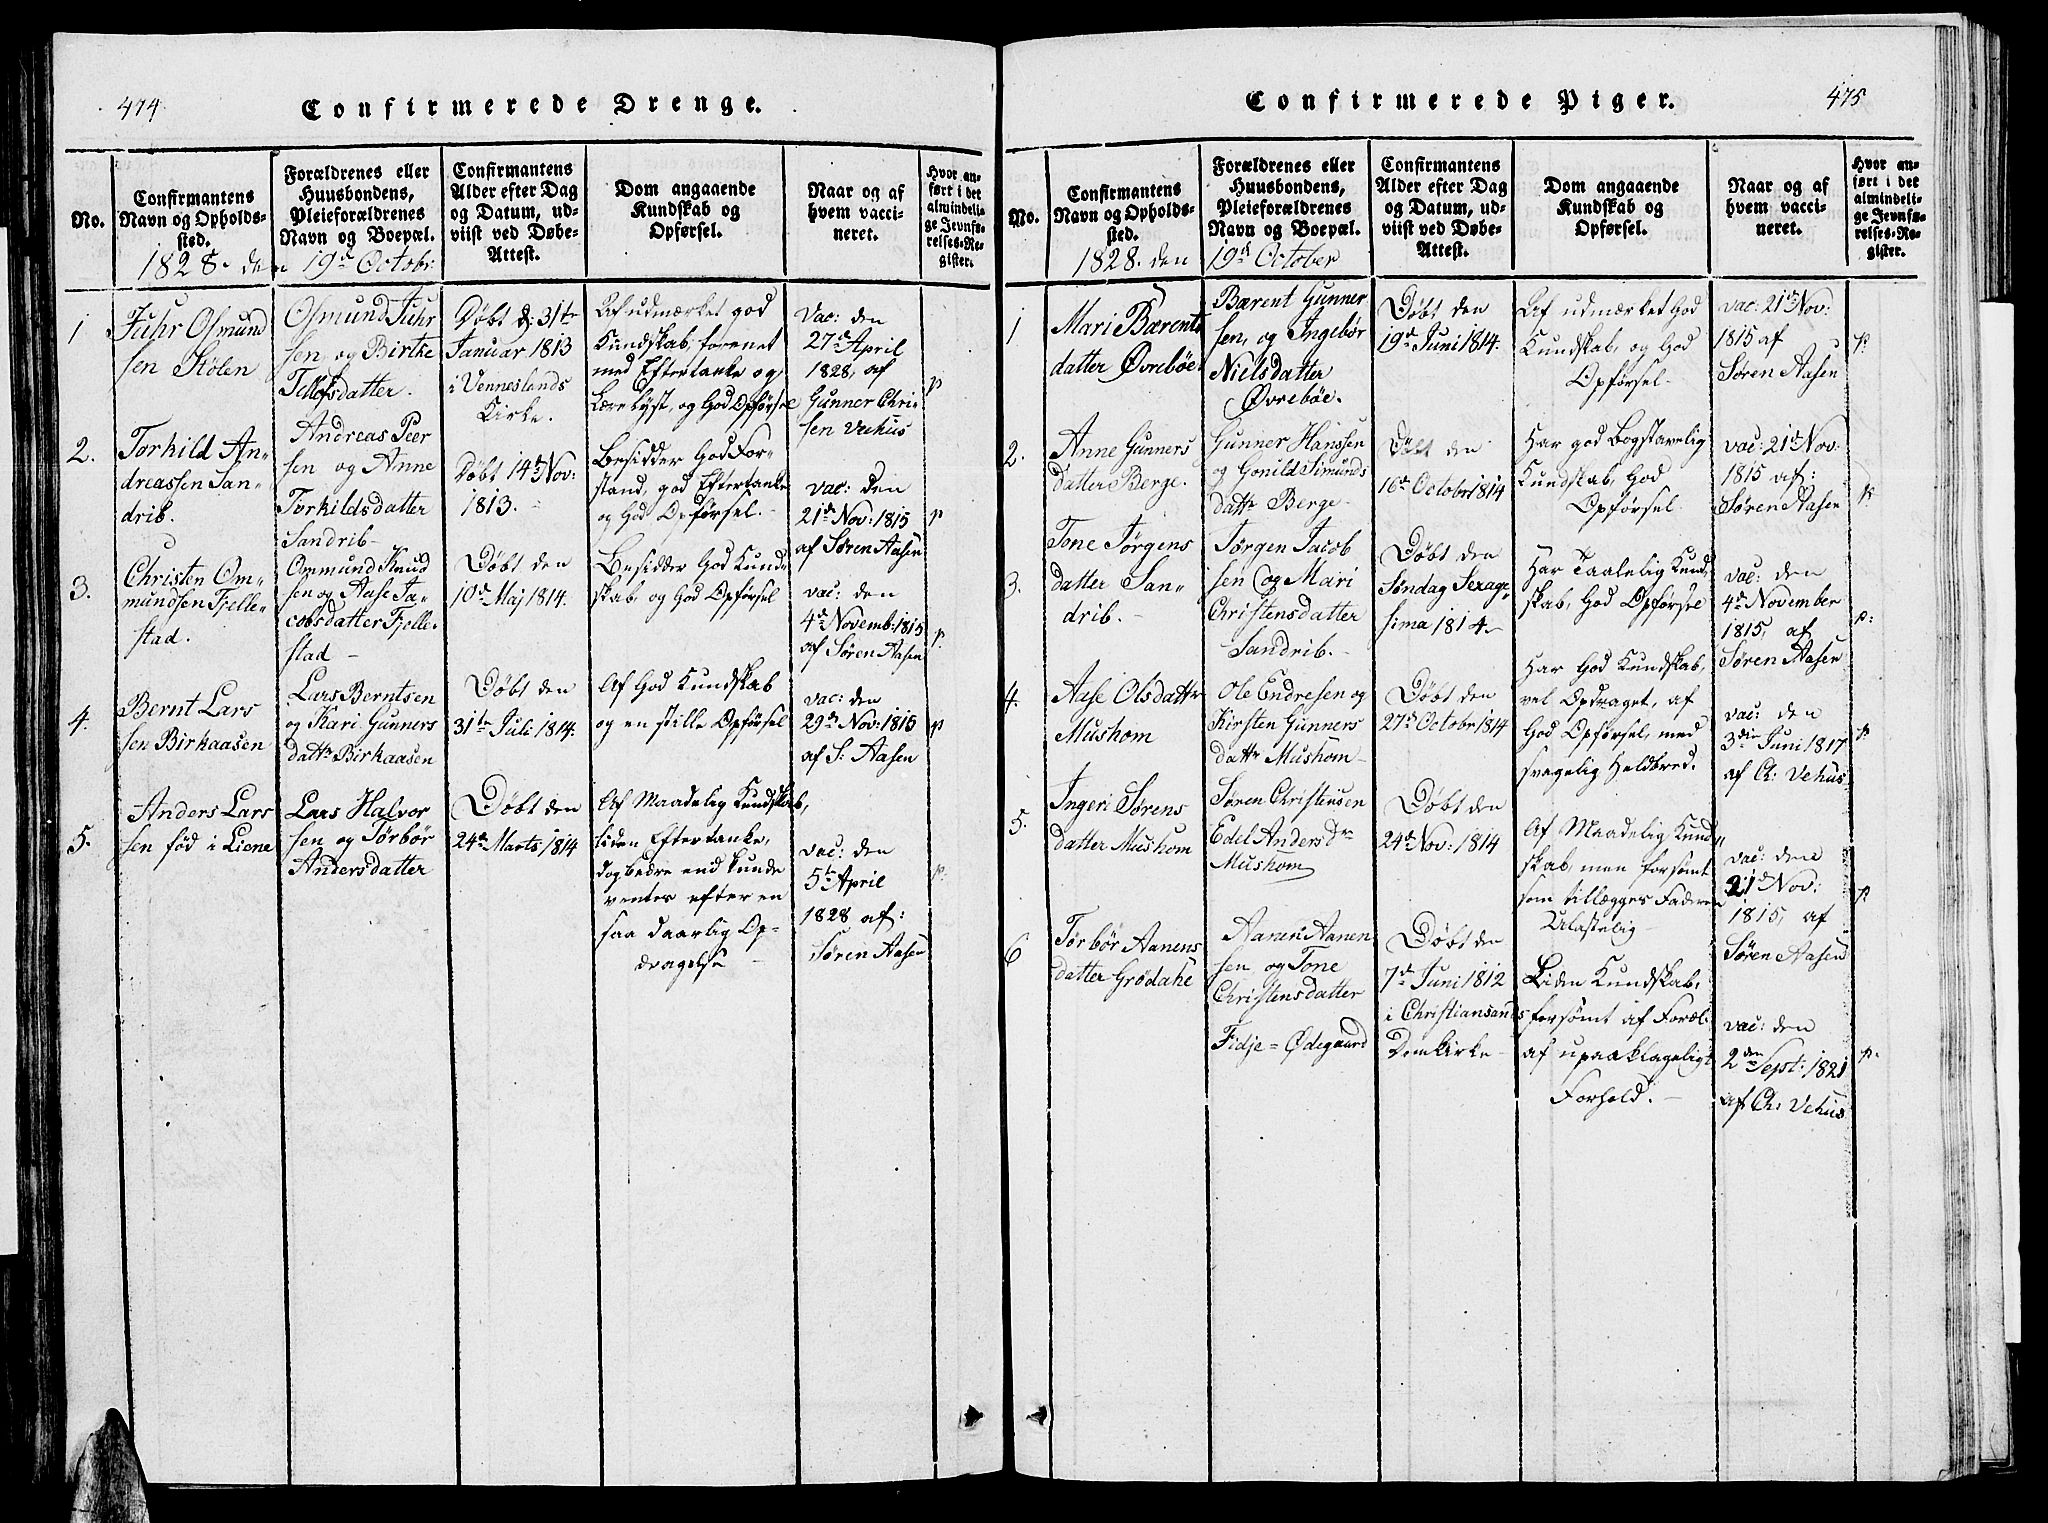 474.
Confirmerede Drenge.
No.
Confirmantens
Navn og Opholds-
sted.
Forældrenes eller
Huusbondens,
Pleieforældrenes
Navn og Boepæl.
Confirmantens
Alder efter Dag
og Datum, ud-
viist ved Døbe-
Attest.
Dom angaaende
Kundskab og
Opførsel.
Naar og af
hvem vacci-
neret.
Hvor an-
ført i det
almindeli-
ge Jevnfø-
relses-Re-
gister.
1828. den 19d Octobr:
1
Juhr Osmund
sen Stølen
Osmund Juhr
sen og Birthe
Tellefsdatter.
Døbt d: 31te
Januar 1813
i Venneslands
Kirke.
Af udmærket god
Kundskab forenet
med Eftertanke og
Lærelyst, og God Opførsel
Vac: den
27de April
1828, af
Gunner Chri-
sen Vehus
p
2.
Torkild An-
dreassen San-
drib.
Andreas Peer
sen og Anne
Torkildsdatter
Sandrib-
Døbt 14de Nov:
1813. -
Besidder God For-
stand, god Eftertanke
og God Opførsel. -
vac: den
21de Nov: 1815
af Søren Aasen
p
3.
Christen Om-
mundsen Fjelle-
stad.
Ommund Knud
sen og Aase Ja-
cobsdatter Fjelle-
stad -
Døbt den
10de Maj 1814.
Besidder God Kund-
skab, og God Opførsel
vac: den
4de Novemb: 1815
af Søren Aasen
p.
4.
Bernt Lars
sen Birkaasen
Lars Berntsen
og Kari Gunners
dattr Birkaasen
Døbt den
31te Juli 1814.
Af God Kundskab
og en stille Opførsel
vac: den
29de Nov: 1815
af S: Aasen
p
5.
Anders Lars
sen fød i Liene
Lars Halvor
sen og Tørbør
Andersdatter
Døbt den
24de Marts 1814
Af Maadelig Kundskab,
liden Eftertanke,
dog bedre end kunde
ventes efter en
saa daarlig Op-
dragelse -
vac: den
5te April
1828 af:
Søren Aasen
p.
475
Confirmerede Piger.
No.
Confirmantens
Navn og Opholds-
sted.
Forældrenes eller
Huusbondens,
Pleieforældrenes
Navn og Boepæl.
Confirmantens
Alder efter Dag
og Datum, ud-
viist ved Døbe-
Attest.
Dom angaaende
Kundskab og
Opførsel.
Naar og af
hvem vacci-
neret.
Hvor an-
ført i det
almindeli-
ge Jevnfø-
relses-Re-
gister.
1828. den 19d October
1
Mari Bærents
datter Øvrebøe
Bærent Gunner
sen, og Ingebør
Nielsdatter
Øvrebøe.
Døbt den
19de Juni 1814.
Af udmærket God
Kundskab, og God
Opførsel.
vac: 21de Nov:
1815 af
Søren Aasen
p.
2.
Anne Gunners
datter Berge.
Gunner Hanssen
og Gonild Simunds
dattr Berge-
Døbt den
16de Octobr 1814
Har god Bogstavelig
Kundskab, God
Opførsel
vac: 21de Nov:
1815 af:
Søren Aasen
p.
3.
Tone Jørgens
datter San-
drib. -
Jørgen Jacob
sen og Mari
Christensdatter
Sandrib. -
Døbt den
Søndag Sexage-
sima 1814-
Har Taalelig Kund-
skab, God Opførsel
vac: den
4de November
1815, af
Søren Aasen
p:
4.
Aase Olsdattr
Mushom
Ole Endresen og
Kirsten Gunners
dattr Mushom-
Døbt den
27de Octobr 1814
Har God Kundskab,
vel Opdraget, af
God Opførsel, med
svagelig Heldbred.
vac: den
3die Juni 1817
af Ch: Vehus
p.
5.
Ingeri Sørens
datter Mushom
Søren Christensen
Edel Anders dr
Mushom
Døbt den
24de Nov: 1814
Af Maadelig Kund-
skab, men forsømt
som tillægges Faderen
Ulastelig -
vac: den
21d Nov:
1815, af
Søren Aasen
p
6
Tørbør Aanens
datter Grødahl
Aanen Aanen
sen og Tone
Christensdatter
Fidje = Ødegaard
Døbt den
7de Juni 1812
i Christiansands
Domkirke -
Liden Kundskab,
forsømt af Foræl:
af upaaklageligt
Forhold. -
vac: den
2den Sept: 1821
af Ch: Vehus
p.